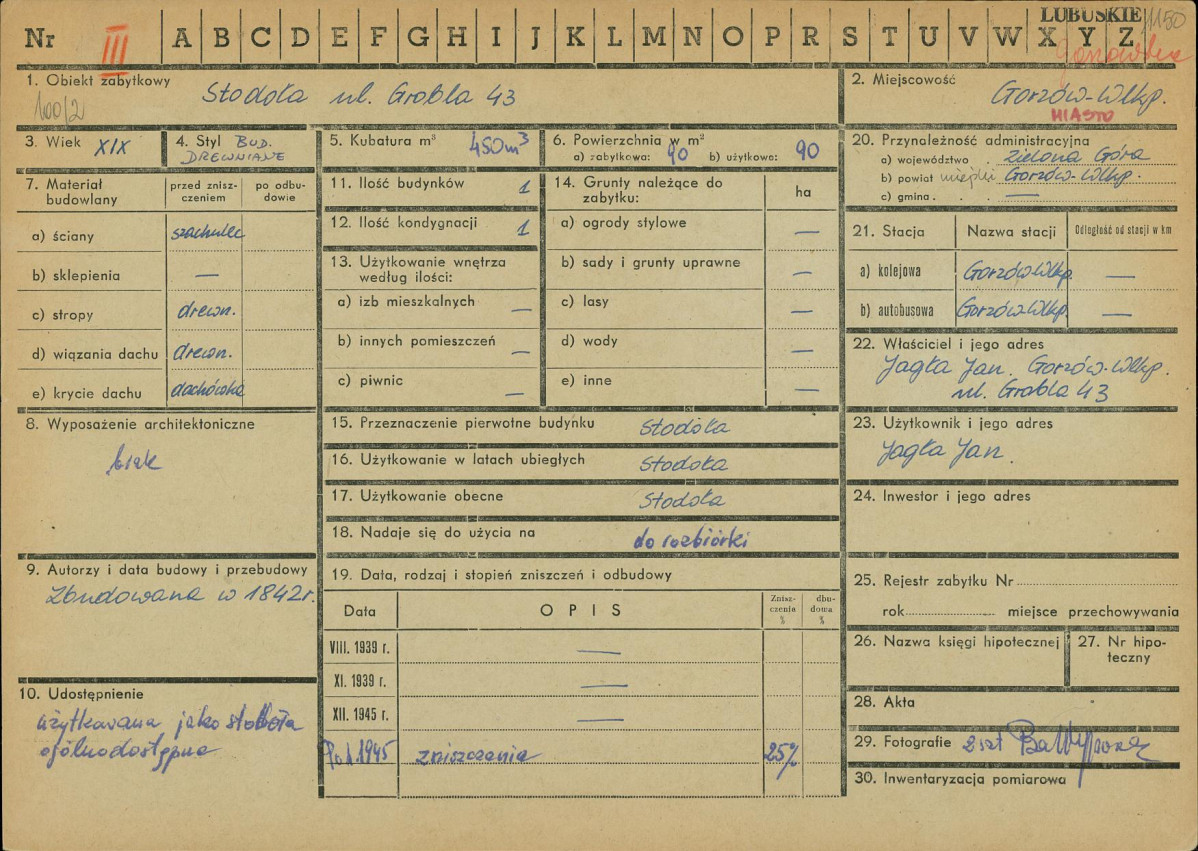 Nr III A B C D E F G H I J K L M N O P R S T U V W X Y Z
LUBUSKIE
1150
1. Obiekt zabytkowy
Stodoła ul. Grobla 43
100/2
2. Miejscowość
Gorzów-Wlkp.
MIASTO
3. Wiek XIX
4. Styl BUD.
DREWNIANE
5. Kubatura m³ 450m³
6. Powierzchnia w m²
a) zabytkowa: 90 b) użytkowa: 90
7. Materiał budowlany
przed zniszczeniem
po odbudowie
a) ściany szachulec
b) sklepienia —
c) stropy drewn.
d) wiązania dachu drewn.
e) krycie dachu dachówka
8. Wyposażenie architektoniczne
brak
9. Autorzy i data budowy i przebudowy
Zbudowana w 1842r.
10. Udostępnienie
użytkowana jako stodoła
ogólnodostępna
11. Ilość budynków 1
12. Ilość kondygnacji 1
13. Użytkowanie wnętrza
według ilości:
a) izb mieszkalnych —
b) innych pomieszczeń —
c) piwnic —
14. Grunty należące do
zabytku:
ha
a) ogrody stylowe —
b) sady i grunty uprawne —
c) lasy —
d) wody —
e) inne —
15. Przeznaczenie pierwotne budynku Stodoła
16. Użytkowanie w latach ubiegłych Stodoła
17. Użytkowanie obecne Stodoła
18. Nadaje się do użycia na do rozbiórki
19. Data, rodzaj i stopień zniszczeń i odbudowy
Data OPIS Zniszczenia % dbudowa %
VIII. 1939 r. —
XI. 1939 r. —
XII. 1945 r. —
Po r. 1945 zniszczenia 25%
20. Przynależność administracyjna
a) województwo Zielona Góra
b) powiat miejski Gorzów-Wlkp.
c) gmina —
21. Stacja Nazwa stacji Odległość od stacji w km
a) kolejowa Gorzów-Wlkp. —
b) autobusowa Gorzów-Wlkp. —
22. Właściciel i jego adres
Jagła Jan. Gorzów-Wlkp.
ul. Grobla 43
23. Użytkownik i jego adres
Jagła Jan.
24. Inwestor i jego adres
25. Rejestr zabytku Nr
rok miejsce przechowywania
26. Nazwa księgi hipotecznej
27. Nr hipoteczny
28. Akta
29. Fotografie 2 szt
30. Inwentaryzacja pomiarowa